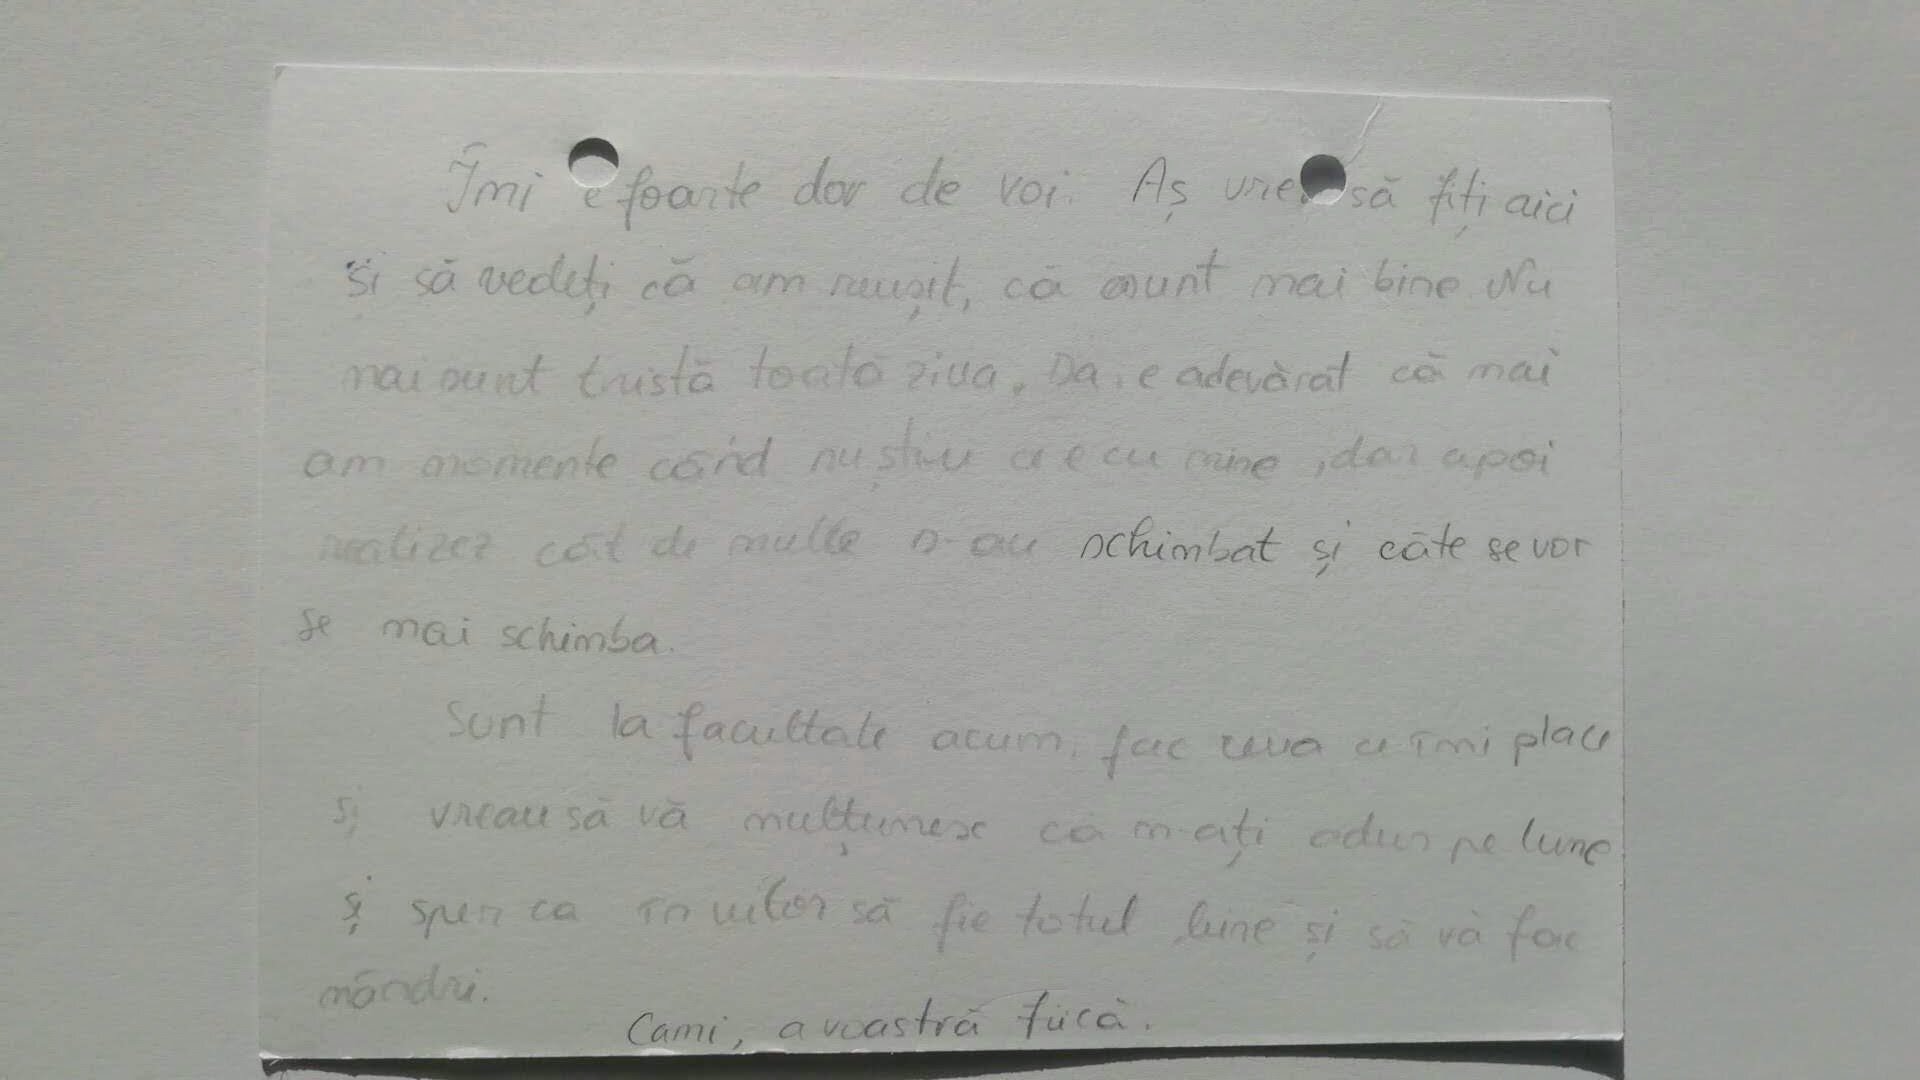 Îmi e foarte dor de voi. Aș vrea să fiți aici
și să vedeți că am reușit, că sunt mai bine. Nu
mai sunt tristă toată ziua. Da, e adevărat că mai
am momente când nu știu ce e cu mine, dar apoi
realizez cât de multe s-au schimbat și câte se vor
se mai schimba.
Sunt la facultate acum, fac ceva ce îmi place
și vreau să vă mulțumesc că m-ați adus pe lume
și sper ca în viitor să fie totul bine și să vă fac
mândri.
Cami, a voastră fiică.